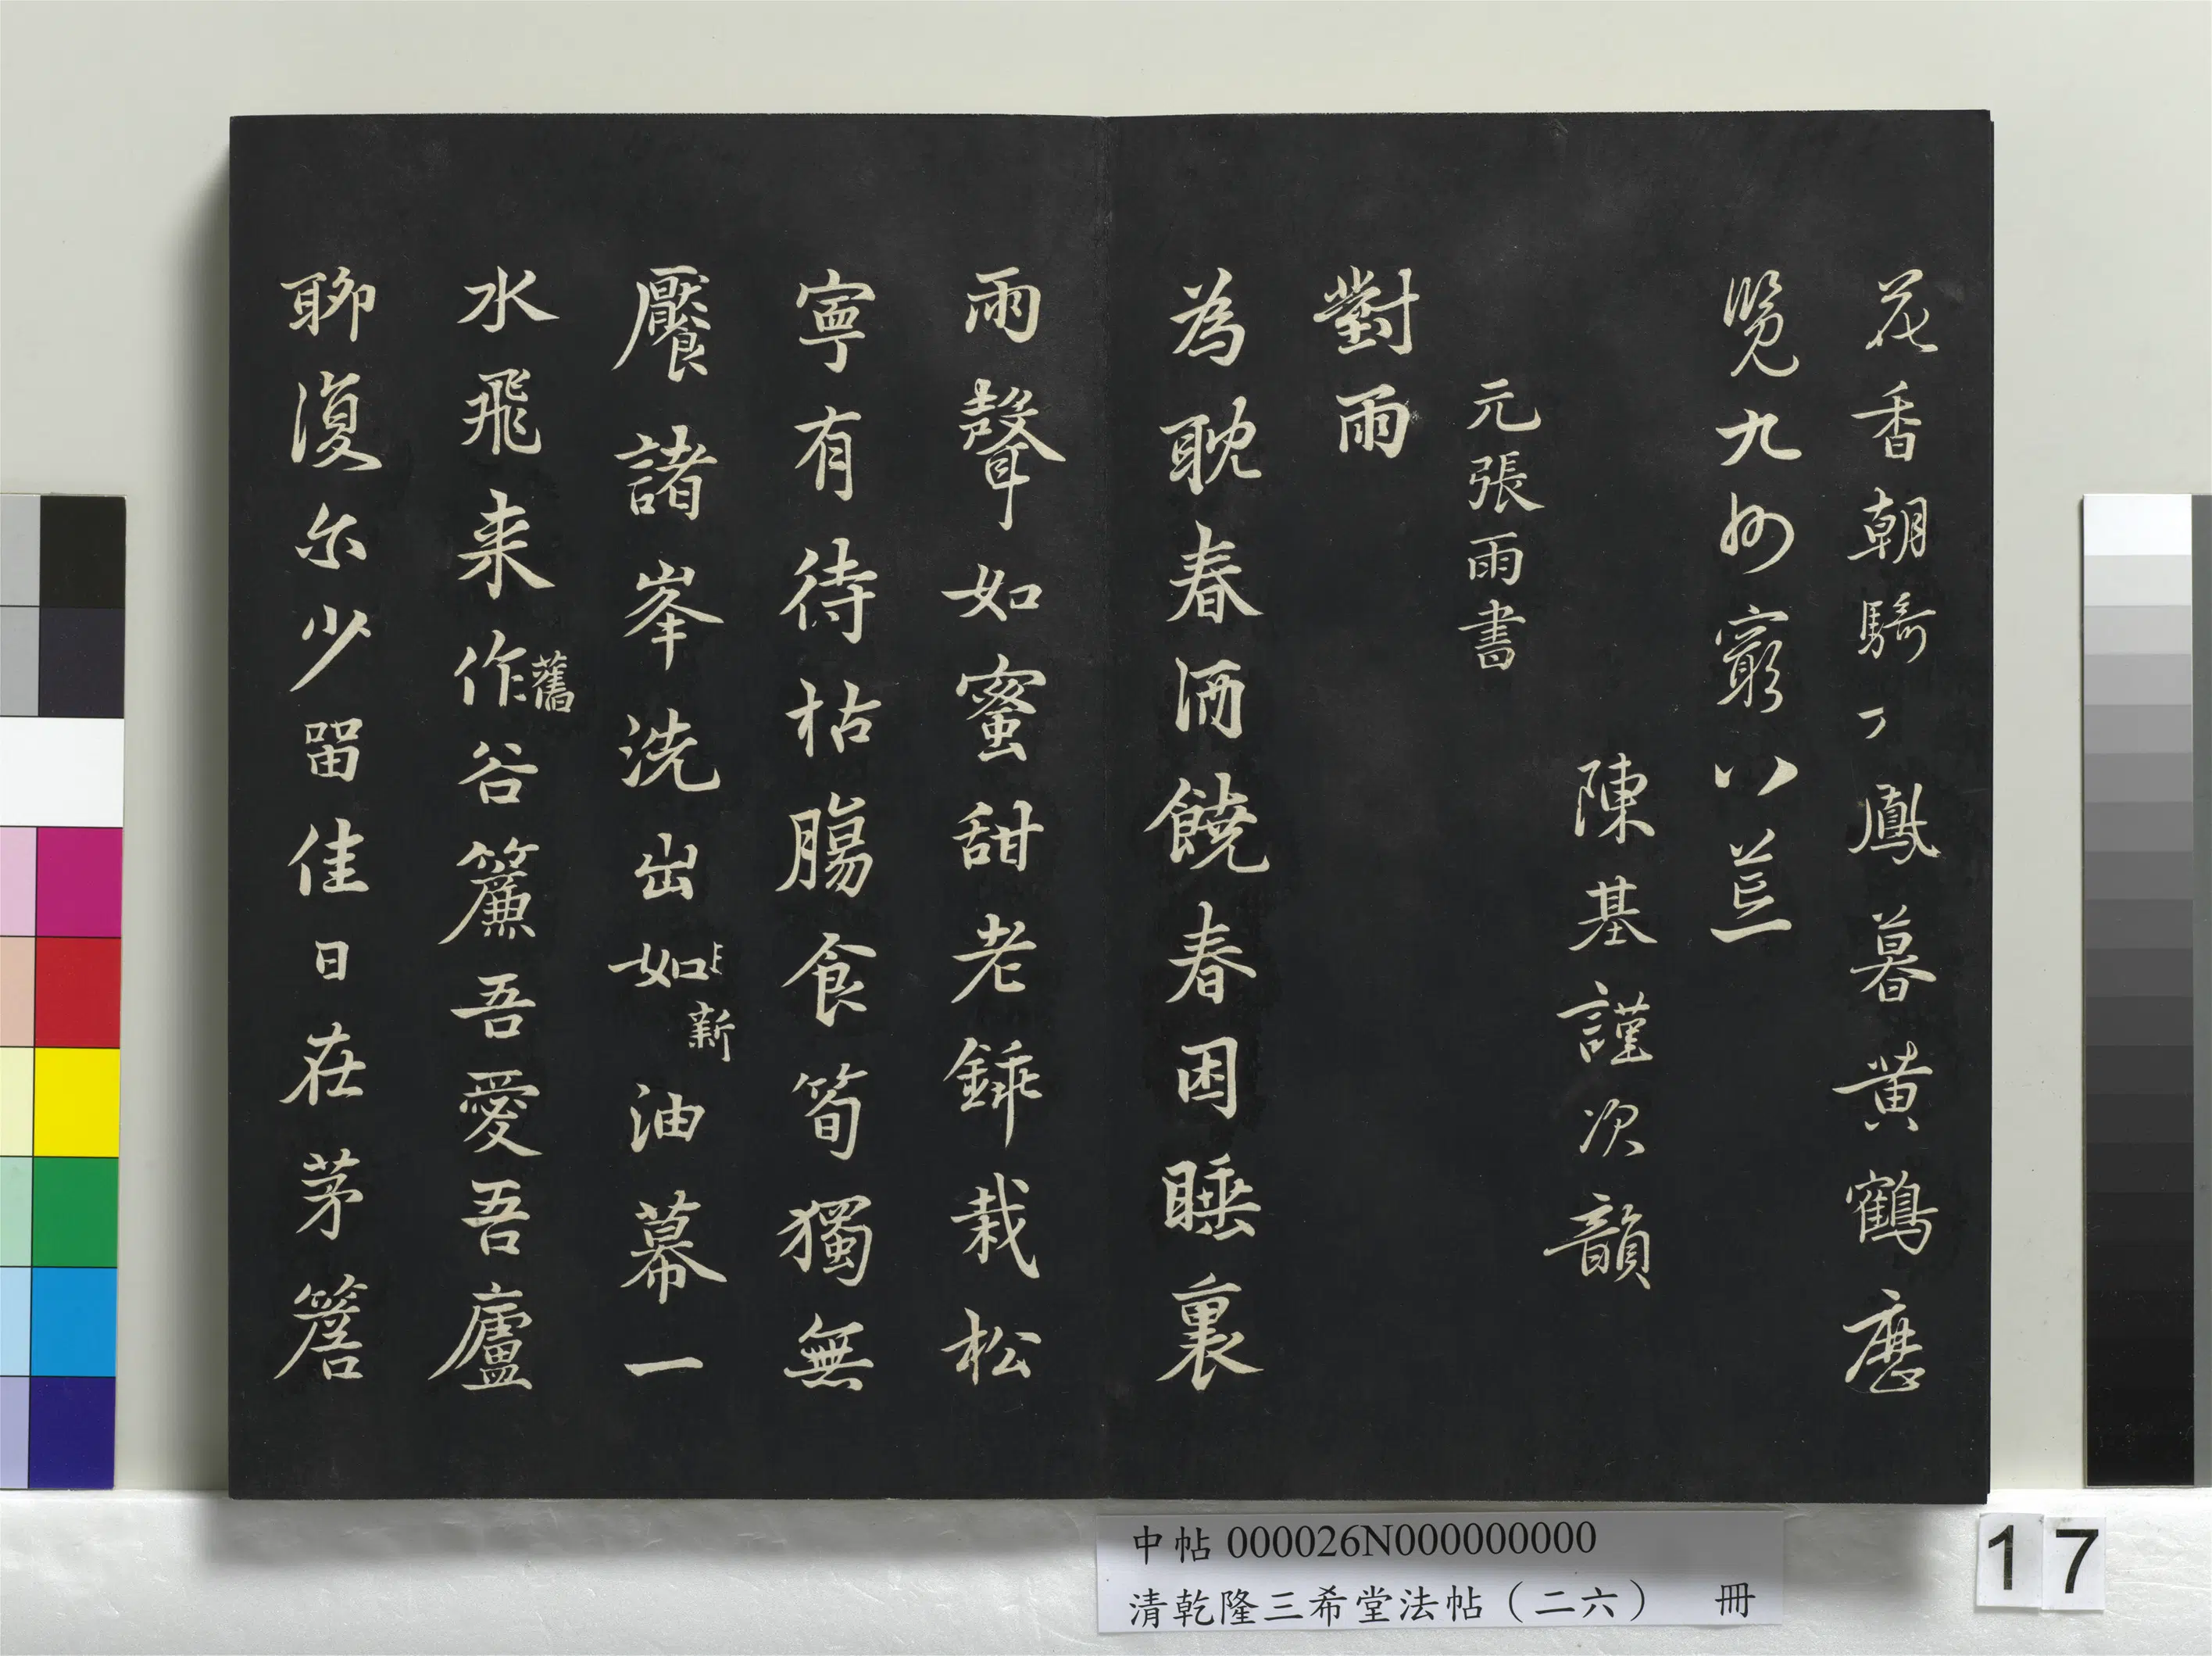 花香朝騎丁鳳暮黄鶴歷
覽九州窮八荒
陳基謹次韻
元張雨書
對雨
為耽春酒饒春困睡裏
雨聲如蜜甜老銕栽松
寧有待枯腸食筍獨無
饜諸峯洗出如新油幕一
水飛来作舊谷簾吾愛吾廬
聊復尔少留佳日在茅簷
中帖000026N000000000
清乾隆三希堂法帖(二六) 冊
17